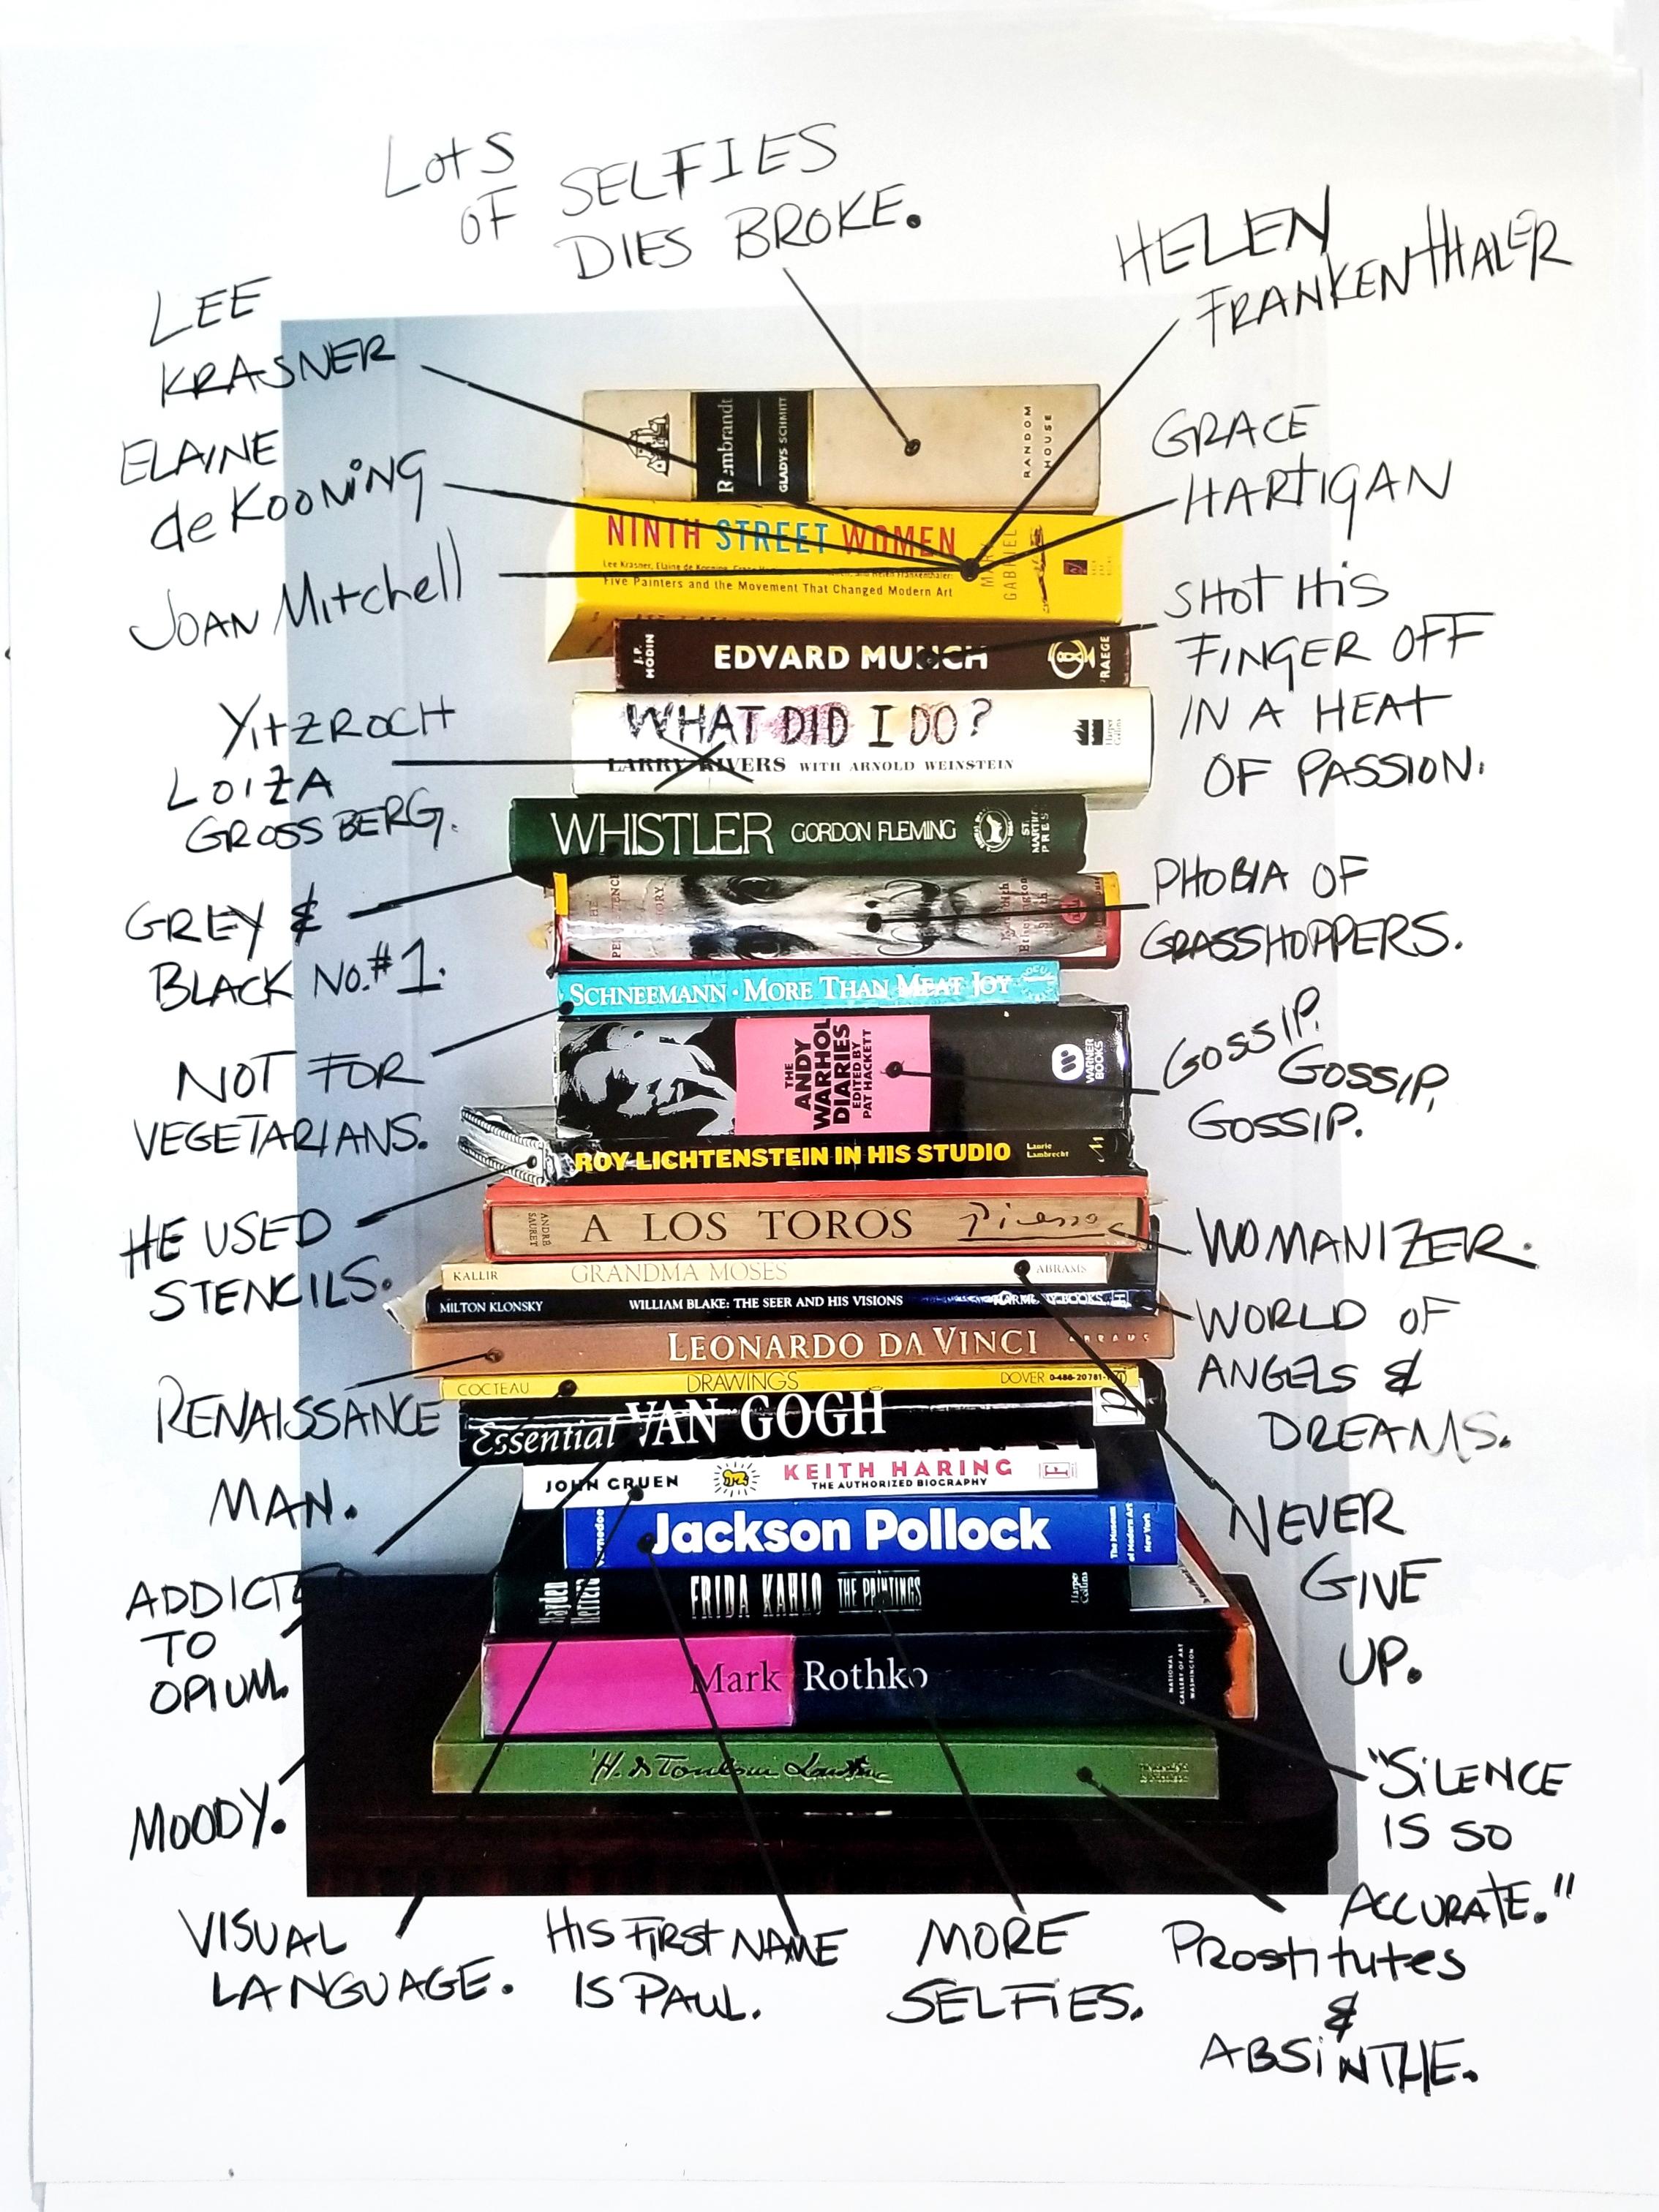 Lots
OF SELFIES
DIES BROKE.
HELEN
FRANKENTHALER
LEE
KRASNER
ELAINE
de KOONING
JOAN MitchEll
GRACE
HARTIGAN
SHOT HIS
FINGER OFF
IN A HEAT
OF PASSION.
YitZROCH
LOIZA
GROSSBERG.
GREY &
BLACK No.#1.
PHOBIA OF
GRASSHOPPERS.
NOT FOR
VEGETARIANS.
GOSSIP,
GOSSIP,
GOSSIP.
HE USED
STENCILS.
WOMANIZER.
WORLD OF
ANGELS &
DREAMS.
RENAISSANCE
MAN.
NEVER
GIVE
UP.
ADDICTED
TO
OPIUM.
MOODY.
"SiLENCE
IS SO
ACCURATE."
VISUAL
LANGUAGE.
HIS FIRST NAME
IS PAUL.
MORE
SELFIES.
PROStitutes
&
ABSiNTHE.
Rembrandt
GLADYS SCHMITT
RANDOM
HOUSE
NINTH STREET WOMEN
Lee Krasner, Elaine de Kooning, and Helen Frankenthaler:
Five Painters and the Movement That Changed Modern Art
MARY
GABRIEL
J.P.
HODIN
EDVARD MUNCH
PRAEGER
WHAT DID I DO?
LARRY RIVERS WITH ARNOLD WEINSTEIN
Harper
Collins
WHISTLER GORDON FLEMING
ST.
MARTIN'S
PRESS
SCHNEEMANN · MORE THAN MEAT JOY
THE
ANDY
WARHOL
DIARIES
EDITED BY
PAT HACKETT
WARNER
BOOKS
ROY LICHTENSTEIN IN HIS STUDIO
Laurie
Lambrecht
ANDRÉ
SAURET
A LOS TOROS Picasso
KALLIR GRANDMA MOSES ABRAMS
MILTON KLONSKY WILLIAM BLAKE: THE SEER AND HIS VISIONS HARMONY BOOKS
LEONARDO DA VINCI ABRAMS
COCTEAU DRAWINGS DOVER 0-486-20781-
Essential VAN GOGH
JOHN GRUEN KEITH HARING
THE AUTHORIZED BIOGRAPHY
Varnedoe Jackson Pollock
The Museum
of Modern Art
New York
Hayden
Herrera
FRIDA KAHLO THE PAINTINGS
Harper
Collins
Mark Rothko
NATIONAL
GALLERY OF ART
WASHINGTON